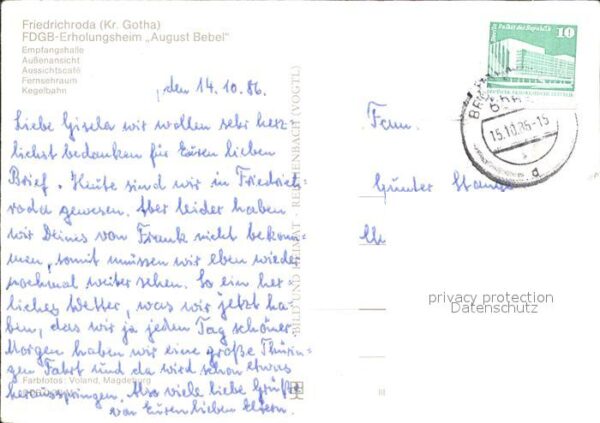 Friedrichroda (Kr. Gotha)
FDGB-Erholungsheim „August Bebel"
Empfangshalle
Außenansicht
Aussichtscafé
Fernsehraum
Kegelbahn
den 14.10.86.
Liebe Gisela wir wollen sehr herz-
lichst bedanken für Euren lieben
Brief. Heute sind wir in Friedrich
roda gewesen. Aber leider haben
wir Deines von Frank nicht bekom-
men, somit müssen wir eben wieder
nochmal weiter sehen. So ein her-
liches Wetter, was wir jetzt ha-
ben, das wir ja jeden Tag schöner
Morgen haben wir eine große Thürin-
gen Fahrt und da wird schon etwas
herausspringen. Also viele liebe Grüße
von Euren lieben Eltern.
Farbfotos: Voland, Magdeburg
BILD UND HEIMAT · REICHENBACH (VOGTL)
Palast der Republik
10
15.10.86-15
a
Fam.
Günter
privacy protection
Datenschutz